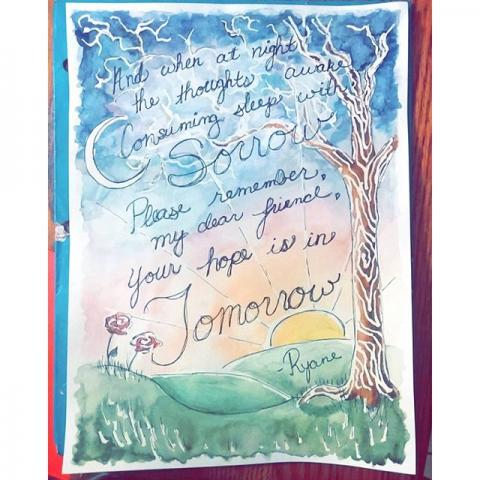 And when at night
the thoughts awake
Consuming sleep with
Sorrow
Please remember,
my dear friend,
Your hope is in
Tomorrow
-Ryane